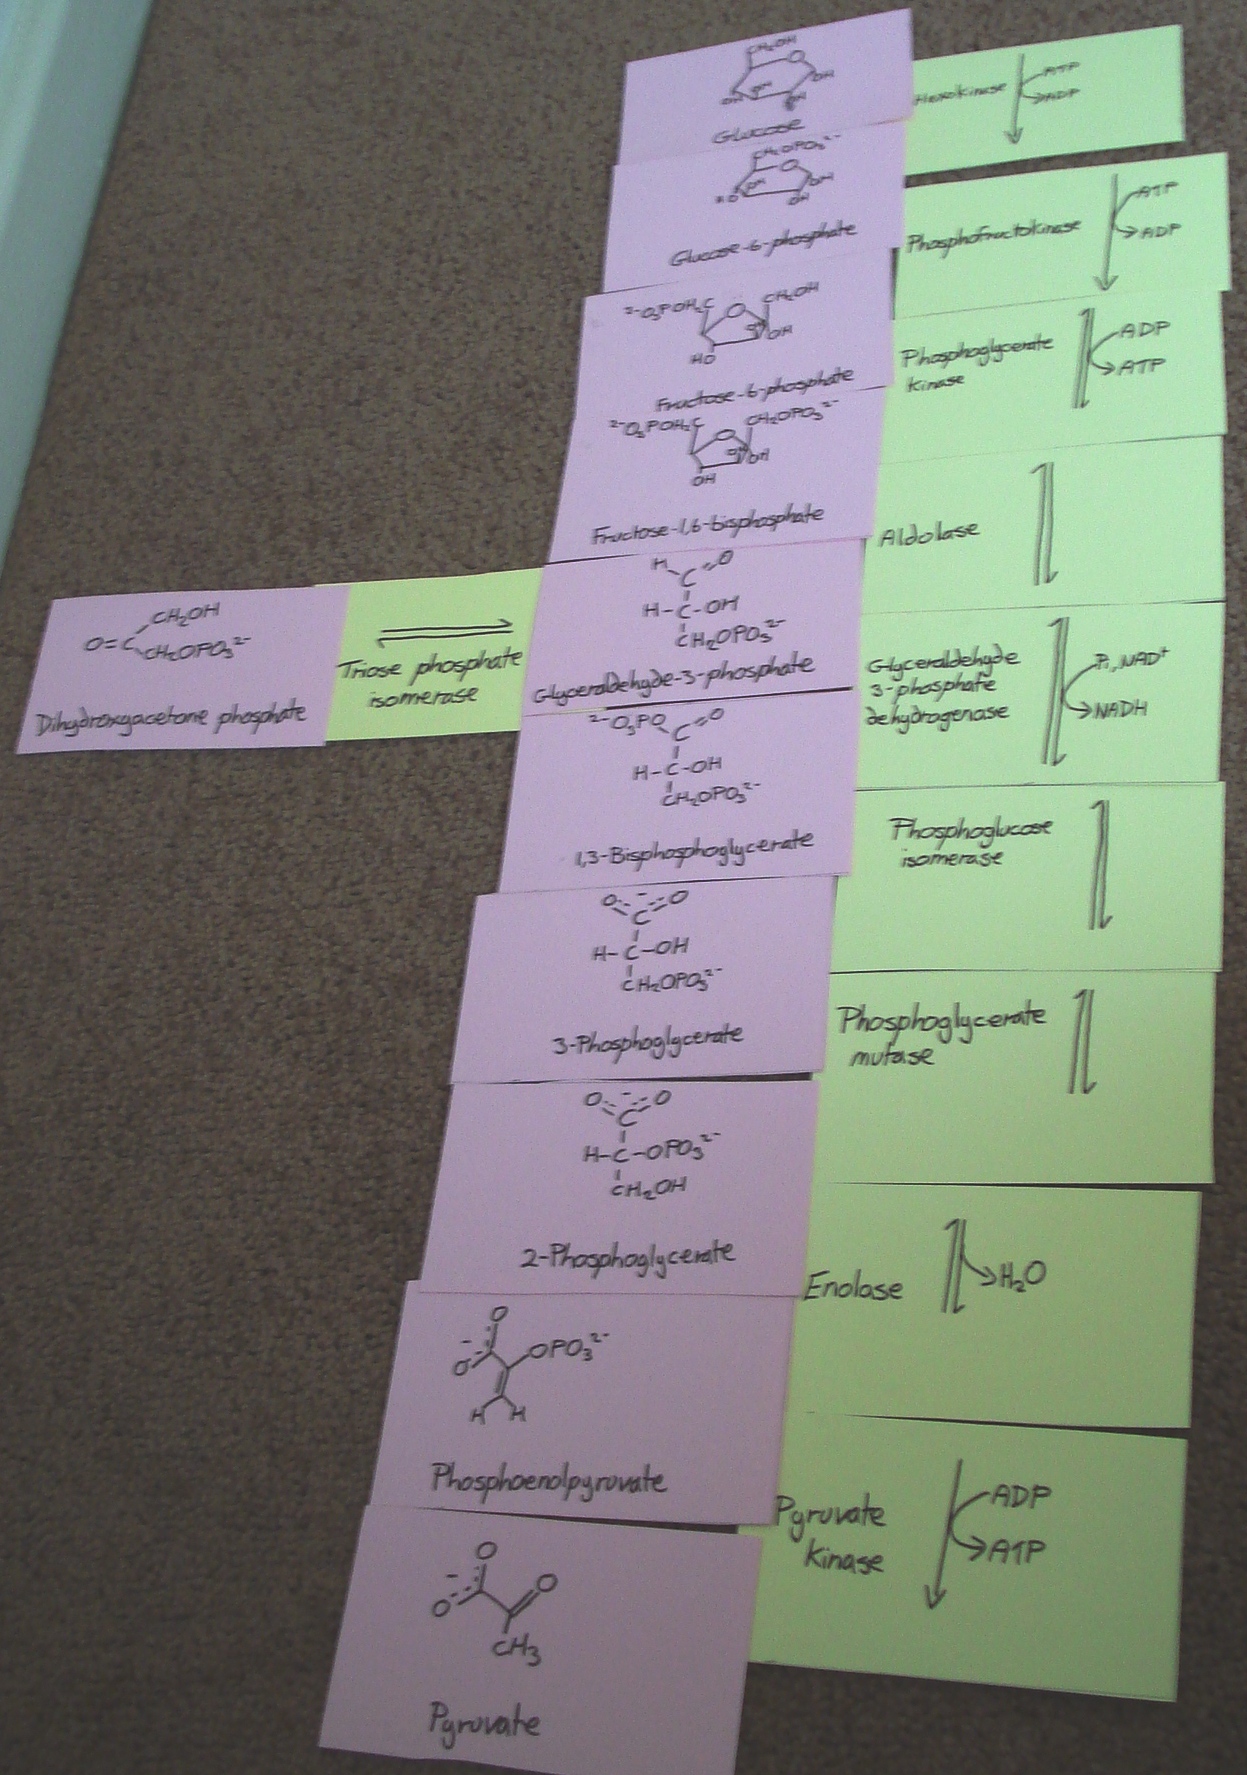 CH₂OH
O
OH
OH
OH
OH
Glucose
Hexokinase
ATP
ADP
CH₂OPO₃²⁻
O
OH
OH
HO
OH
Glucose-6-phosphate
Phosphofructokinase
ATP
ADP
²⁻O₃POH₂C
O
CH₂OH
OH
OH
HO
Fructose-6-phosphate
Phosphoglycerate
kinase
ADP
ATP
²⁻O₃POH₂C
O
CH₂OPO₃²⁻
OH
OH
OH
Fructose-1,6-bisphosphate
Aldolase
CH₂OH
O=C
CH₂OPO₃²⁻
Dihydroxyacetone phosphate
Triose phosphate
isomerase
H
C
O
H-C-OH
CH₂OPO₃²⁻
Glyceraldehyde-3-phosphate
Glyceraldehyde
3-phosphate
dehydrogenase
Pi, NAD⁺
NADH
²⁻O₃PO
C
O
H-C-OH
CH₂OPO₃²⁻
1,3-Bisphosphoglycerate
Phosphoglucose
isomerase
O
-
O
C
H-C-OH
CH₂OPO₃²⁻
3-Phosphoglycerate
Phosphoglycerate
mutase
O
-
O
C
H-C-OPO₃²⁻
CH₂OH
2-Phosphoglycerate
Enolase
H₂O
O
-
O
OPO₃²⁻
H H
Phosphoenolpyruvate
Pyruvate
kinase
ADP
ATP
O
-
O
O
CH₃
Pyruvate